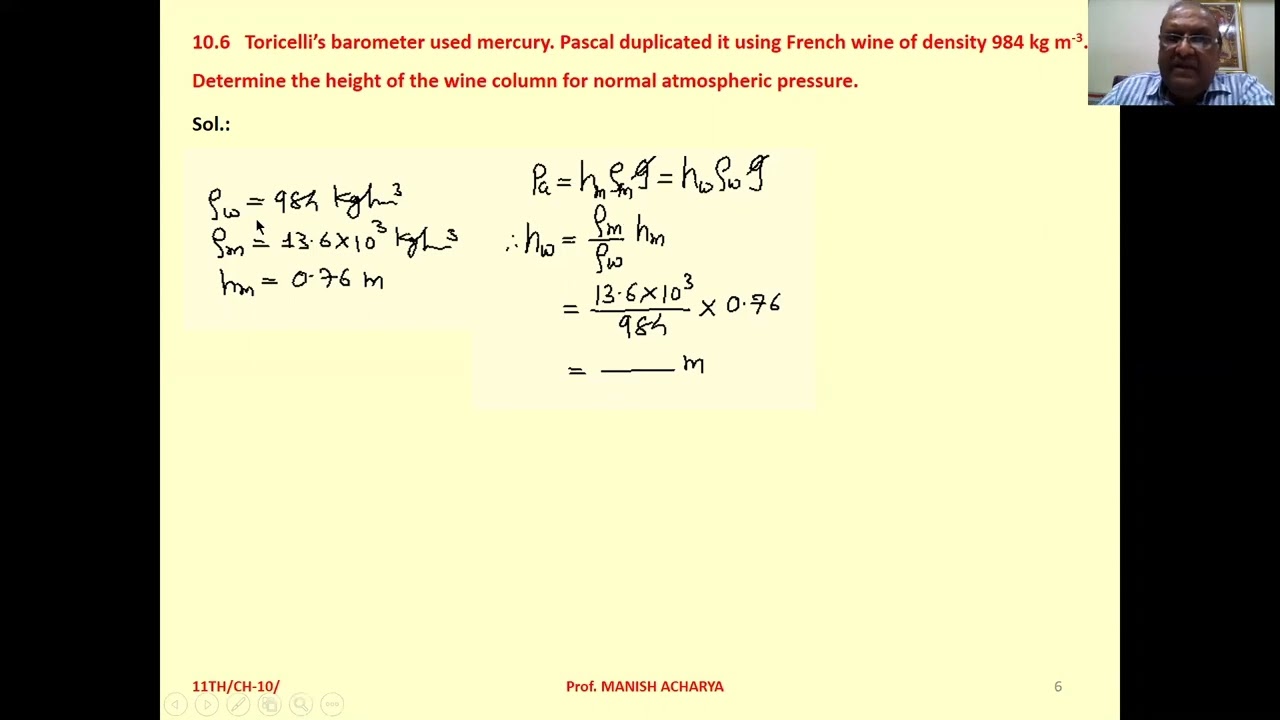 10.6 Toricelli's barometer used mercury. Pascal duplicated it using French wine of density 984 kg m-3.
Determine the height of the wine column for normal atmospheric pressure.
Sol.:
ρw = 984 kg/m3
ρm = 13.6×10^3 kg/m3
hm = 0.76 m
Pa = hm ρm g = hw ρw g
∴ hw = ρm/ρw hm
= 13.6×10^3/984 × 0.76
= ____ m
11TH/CH-10/
Prof. MANISH ACHARYA
6